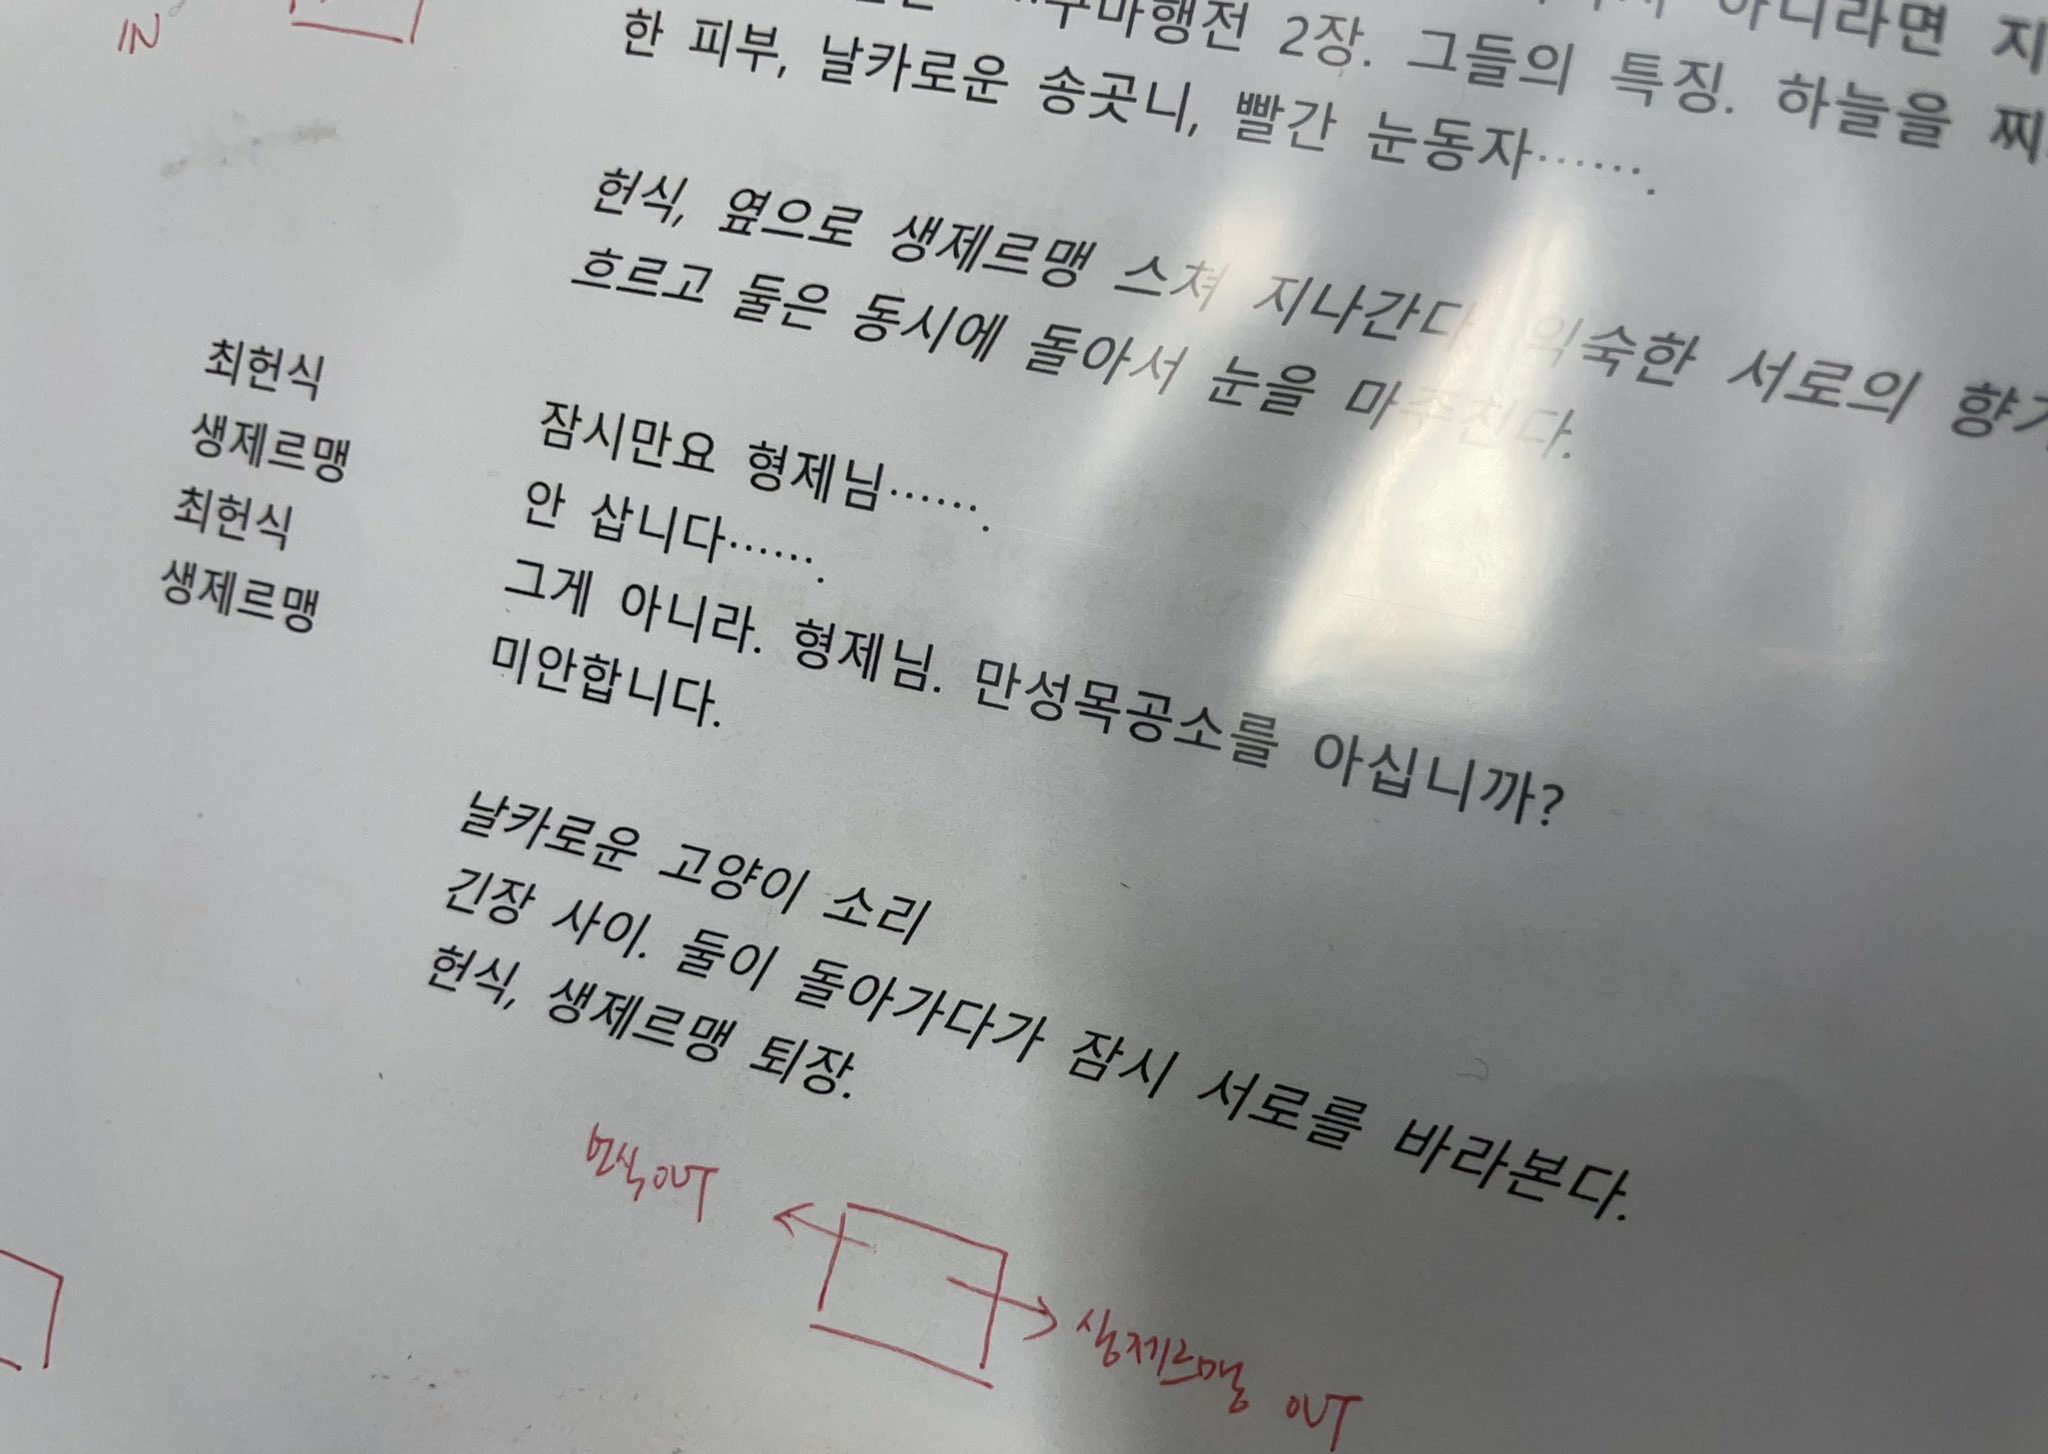 구마행전 2장. 그들의 특징. 하늘을
아니라면
한 피부, 날카로운 송곳니, 빨간 눈동자…….
헌식, 옆으로 생제르맹 스쳐 지나간다. 익숙한 서로의
흐르고 둘은 동시에 돌아서 눈을 마주친다.
최헌식 잠시만요 형제님…….
생제르맹 안 삽니다…….
최헌식 그게 아니라. 형제님. 만성목공소를 아십니까?
생제르맹 미안합니다.
날카로운 고양이 소리
긴장 사이. 둘이 돌아가다가 잠시 서로를 바라본다.
헌식, 생제르맹 퇴장.
헌식 OUT
생제르맹 OUT